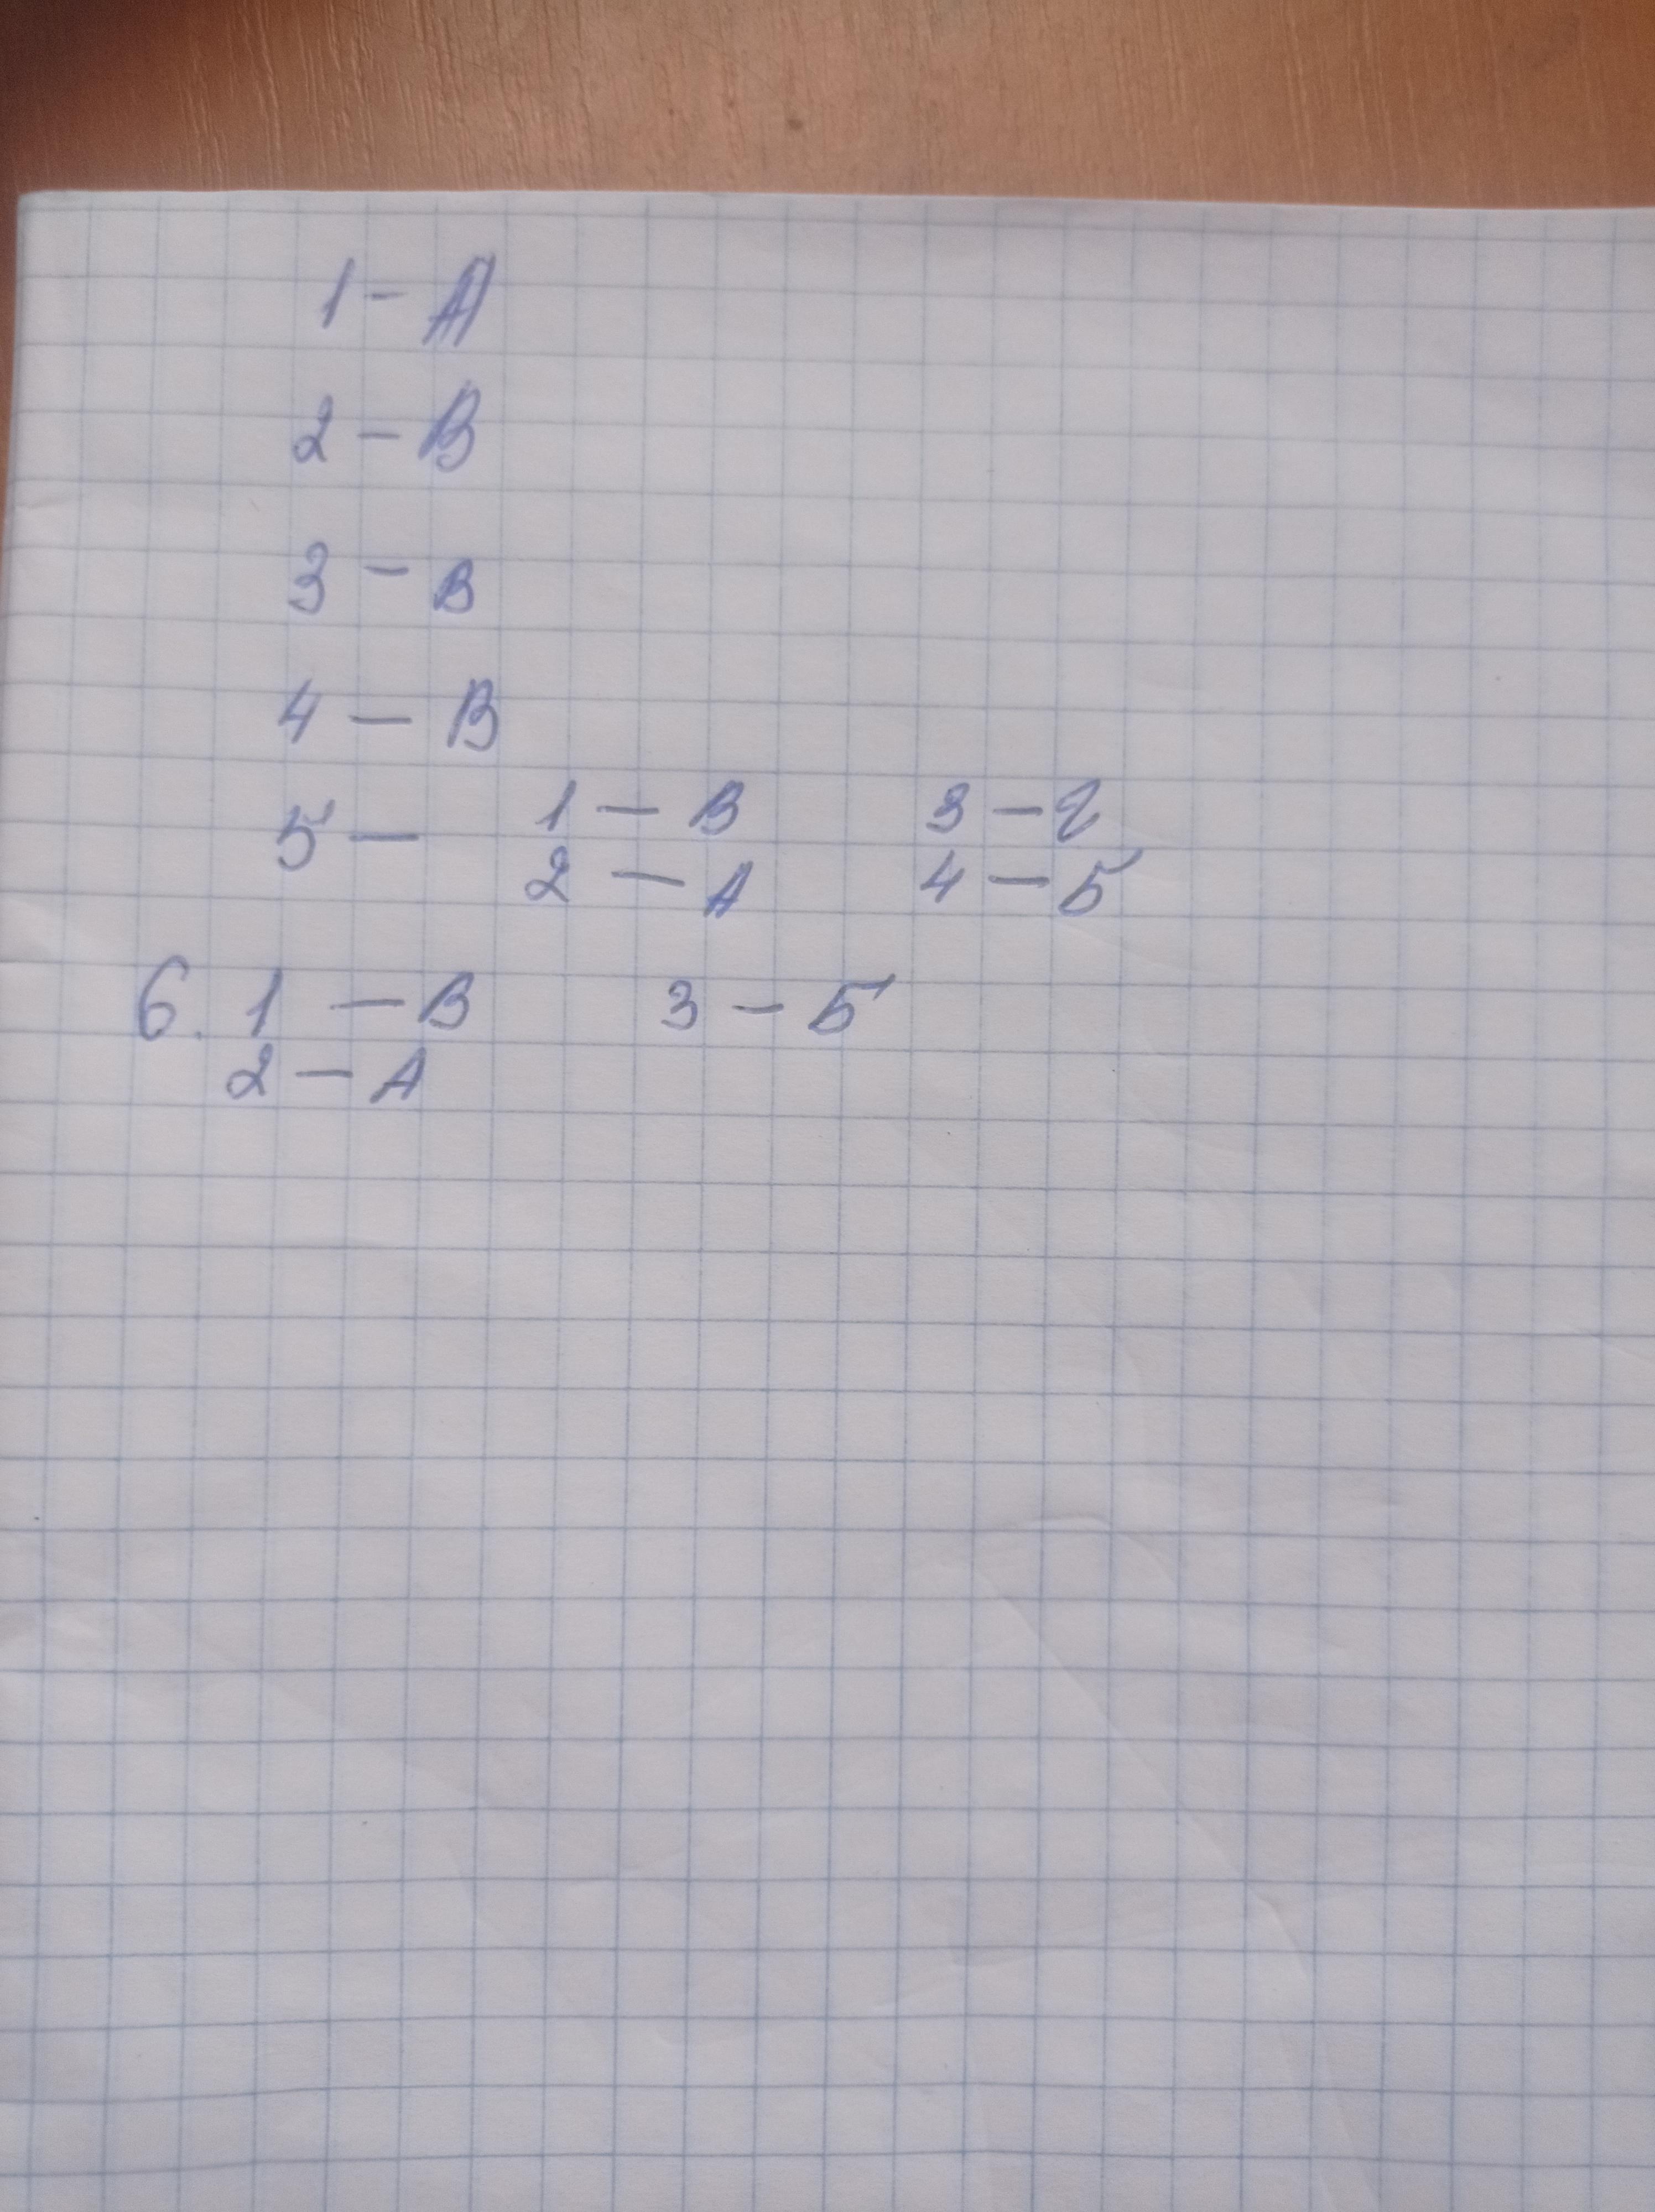 1 - А
2 - В
3 - В
4 - В
5 - 1 - В 3 - Г
2 - А 4 - Б
6. 1 - В 3 - Б
2 - А